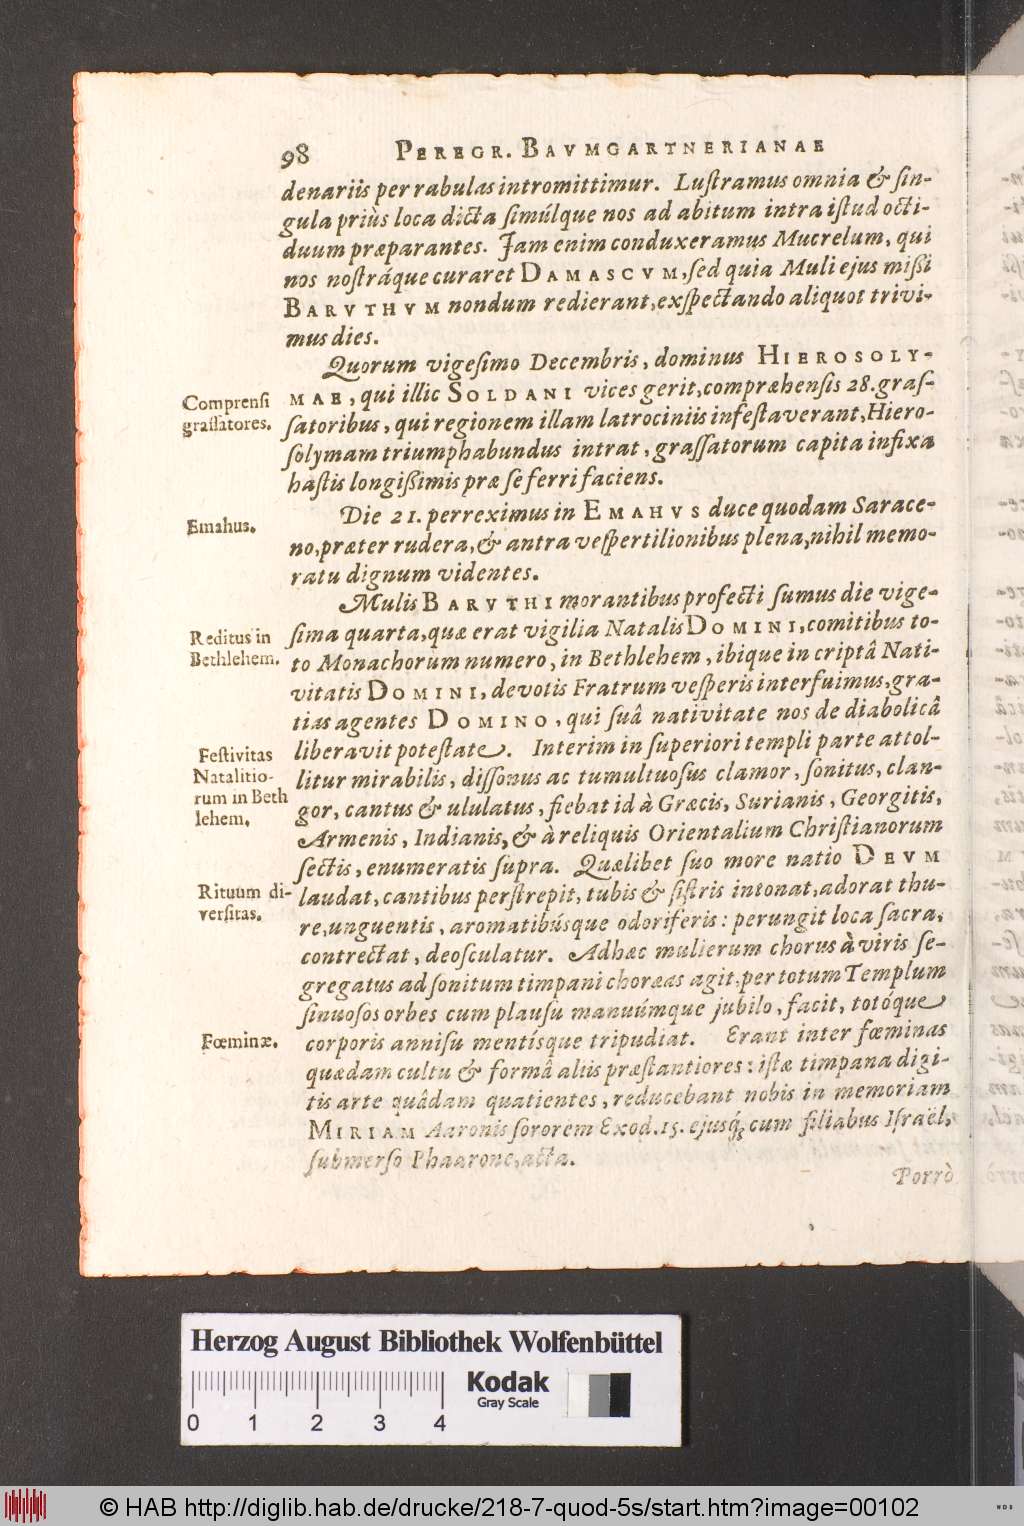 98 PEREGR. BAVMGARTNERIANAE
denariis per rabulas intromittimur. Luſtramus omnia & ſin-
gula priùs loca dicta ſimúlque nos ad abitum intra iſtud octi-
duum præparantes. Jam enim conduxeramus Mucrelum, qui
nos noſtráque curaret DAMASCVM, ſed quia Muli ejus mißi
BARVTHVM nondum redierant, exſpectando aliquot trivi-
mus dies.
Quorum vigeſimo Decembris, dominus HIEROSOLY-
MAE, qui illic SOLDANI vices gerit, compræhenſis 28. graſ-
Comprenſi
graſſatores.
ſatoribus, qui regionem illam latrociniis infeſtaverant, Hiero-
ſolymam triumphabundus intrat, graſſatorum capita infixa
haſtis longißimis præ ſe ferri faciens.
Die 21. perreximus in EMAHVS duce quodam Sarace-
Emahus.
no, præter rudera, & antra veſpertilionibus plena, nihil memo-
ratu dignum videntes.
Mulis BARVTHI morantibus profecti ſumus die vige-
ſima quarta, quæ erat vigilia Natalis DOMINI, comitibus to-
Reditus in
Bethlehem.
to Monachorum numero, in Bethlehem, ibique in criptâ Nati-
vitatis DOMINI, devotis Fratrum veſperis interfuimus, gra-
tias agentes DOMINO, qui ſuâ nativitate nos de diabolicâ
liberavit poteſtate. Interim in ſuperiori templi parte attol-
Feſtivitas
Natalitio-
rum in Beth
lehem.
litur mirabilis, diſſonus ac tumultuoſus clamor, ſonitus, clan-
gor, cantus & ululatus, fiebat id à Græcis, Surianis, Georgitis,
Armenis, Indianis, & à reliquis Orientalium Chriſtianorum
ſectis, enumeratis ſupra. Quælibet ſuo more natio DEVM
Rituum di-
verſitas.
laudat, cantibus perſtrepit, tubis & ſiſtris intonat, adorat thu-
re, unguentis, aromatibúsque odoriferis: perungit loca ſacra,
contrectat, deoſculatur. Adhæc mulierum chorus à viris ſe-
gregatus ad ſonitum timpani choræas agit, per totum Templum
ſinuoſos orbes cum plauſu manuúmque jubilo, facit, totóque
Fœminæ.
corporis anniſu mentísque tripudiat. Erant inter fœminas
quædam cultu & formâ aliis præſtantiores: iſtæ timpana digi-
tis arte quâdam quatientes, reducebant nobis in memoriam
MIRIAM Aaronis ſororem Exod. 15. ejusq́; cum filiabus Iſraël,
ſubmerſo Phaarone, acta.
Porrò
Herzog August Bibliothek Wolfenbüttel
0 1 2 3 4
Kodak
Gray Scale
© HAB http://diglib.hab.de/drucke/218-7-quod-5s/start.htm?image=00102